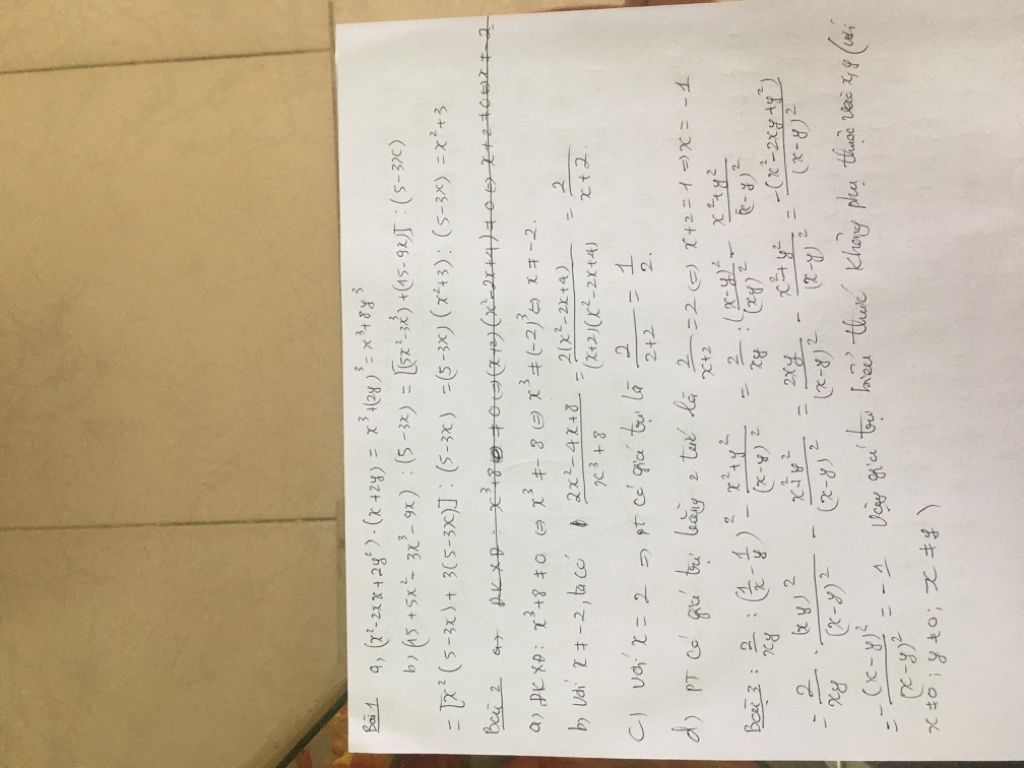 Bài 1 a, (x² - 2xx + 2y²) . (x + 2y) = x³ + (2y)³ = x³ + 8y³
b, (15 + 5x² - 3x³ - 9x) : (5 - 3x) = [5x² - 3x³) + (15 - 9x)] : (5 - 3x)
= [x² (5 - 3x) + 3(5 - 3x)] : (5 - 3x) = (5 - 3x) (x² + 3) : (5 - 3x) = x² + 3
Bài 2 a, ĐKXĐ : x³ + 8 ≠ 0 ⇔ (x+2) (x² - 2x + 4) ≠ 0 ⇔ x + 2 ≠ 0 ⇔ x ≠ -2
a) ĐKXĐ: x³ + 8 ≠ 0 ⇔ x³ ≠ - 8 ⇔ x³ ≠ (-2)³ ⇔ x ≠ -2.
b, Với x ≠ -2, ta có 2x² - 4x + 8 / x³ + 8 = 2(x² - 2x + 4) / (x+2)(x² - 2x + 4) = 2 / x + 2.
c) Với x = 2 ⇒ PT có giá trị là 2 / 2+2 = 1 / 2.
d) PT có giá trị bằng 2 tức là 2 / x+2 = 2 ⇔ x + 2 = 1 ⇒ x = - 1
Bài 3 : 2 / xy : (1/x - 1/y)² - x² + y² / (x - y)² = 2 / xy : (x - y)² / (xy)² - x² + y² / (x - y)²
= 2 / xy . (xy)² / (x - y)² - x² + y² / (x - y)² = 2xy / (x - y)² - x² + y² / (x - y)² = -(x² - 2xy + y²) / (x - y)²
= - (x - y)² / (x - y)² = - 1 Vậy giá trị biểu thức không phụ thuộc vào x, y (với
x ≠ 0 ; y ≠ 0 ; x ≠ y )